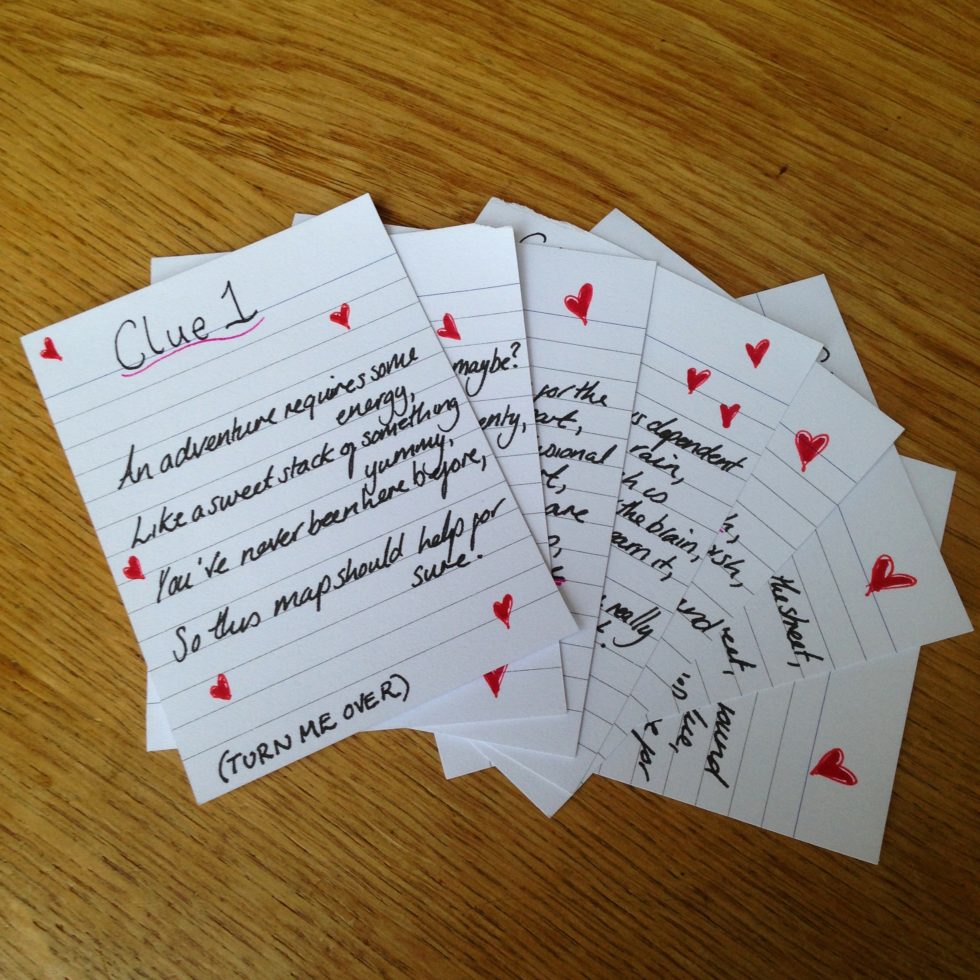 Clue 1
An adventure requires some
energy,
Like a sweet stack of something
yummy,
You've never been here before,
So this map should help for
sure!
(TURN ME OVER)
maybe?
for the
sional
are
is dependent
the brain,
really
the street,
round
for